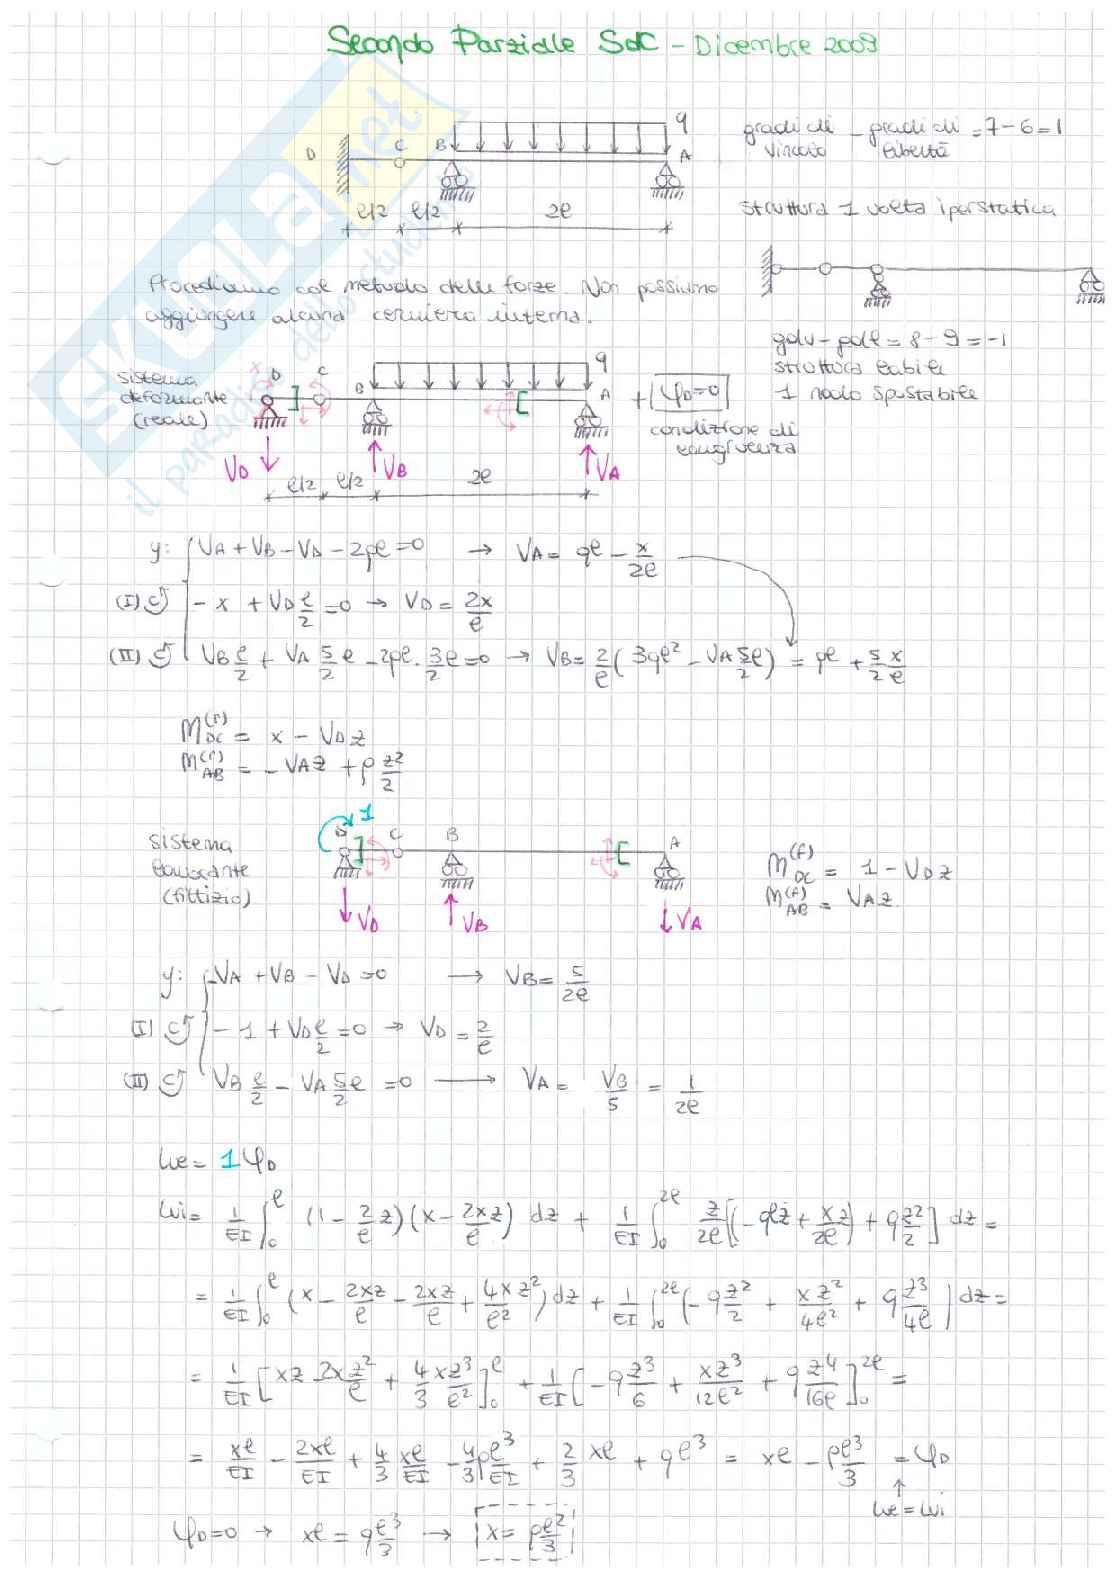 Secondo Parziale SdC - Dicembre 2009
gradi di vincolo - gradi di libertà = 7-6=1
D C B q A
ℓ/2 ℓ/2 2ℓ
struttura 1 volta iperstatica
Procediamo col metodo delle forze. Non possiamo
aggiungere alcuna cerniera interna.
gdv - gdl = 8-9 = -1
struttura labile
1 nodo spostabile
sistema
deformante
(reale)
x D C B q A + φD=0
condizione di
congruenza
VD VB VA
ℓ/2 ℓ/2 2ℓ
y: VA + VB - VD - 2qℓ = 0 → VA = qℓ - x/2ℓ
(I) C - x + VD ℓ/2 = 0 → VD = 2x/ℓ
(II) C VB ℓ/2 + VA 5/2 ℓ - 2qℓ · 3/2 ℓ = 0 → VB = 2/ℓ (3qℓ² - VA 5/2 ℓ) = qℓ + 5/2 x/ℓ
M(r)DC = x - VD z
M(r)AB = - VA z + q z²/2
sistema
lavorante
(fittizio)
1
D C B A
VD VB VA
M(f)DC = 1 - VD z
M(f)AB = VA z
y: -VA + VB - VD = 0 → VB = 5/2ℓ
(I) C - 1 + VD ℓ/2 = 0 → VD = 2/ℓ
(II) C VB ℓ/2 - VA 5/2 ℓ = 0 → VA = VB/5 = 1/2ℓ
We = 1 φD
Wi = 1/EI ∫₀^ℓ (1 - 2/ℓ z)(x - 2xz/ℓ) dz + 1/EI ∫₀^2ℓ z/2ℓ [(-qℓz + xz/2ℓ) + q z²/2] dz =
= 1/EI ∫₀^ℓ (x - 2xz/ℓ - 2xz/ℓ + 4xz²/ℓ²) dz + 1/EI ∫₀^2ℓ (-q z²/2 + xz²/4ℓ² + q z³/4ℓ) dz =
= 1/EI [xz - 2x z²/ℓ + 4/3 xz³/ℓ²]₀^ℓ + 1/EI [-q z³/6 + xz³/12ℓ² + q z⁴/16ℓ]₀^2ℓ =
= xℓ/EI - 2xℓ/EI + 4/3 xℓ/EI - 4/3 qℓ³/EI + 2/3 xℓ + qℓ³ = xℓ - qℓ³/3 = φD
We = Wi
φD=0 → xℓ = qℓ³/3 → x = qℓ²/3
SKUOLA.net
il paradiso dello studente